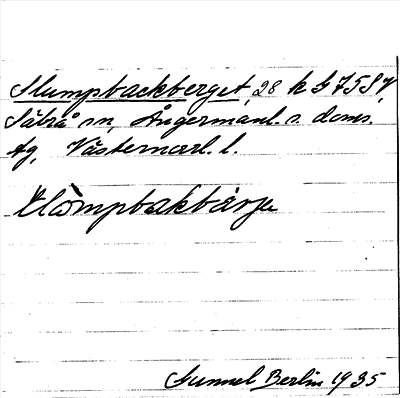 Slumpbackberget, 28 k G7S8V,
Säbrå sn, Ångermanl. s. doms.
tg, Västernorrl. l.
Slòmpbakbärje
Gunnel Berlin 1935